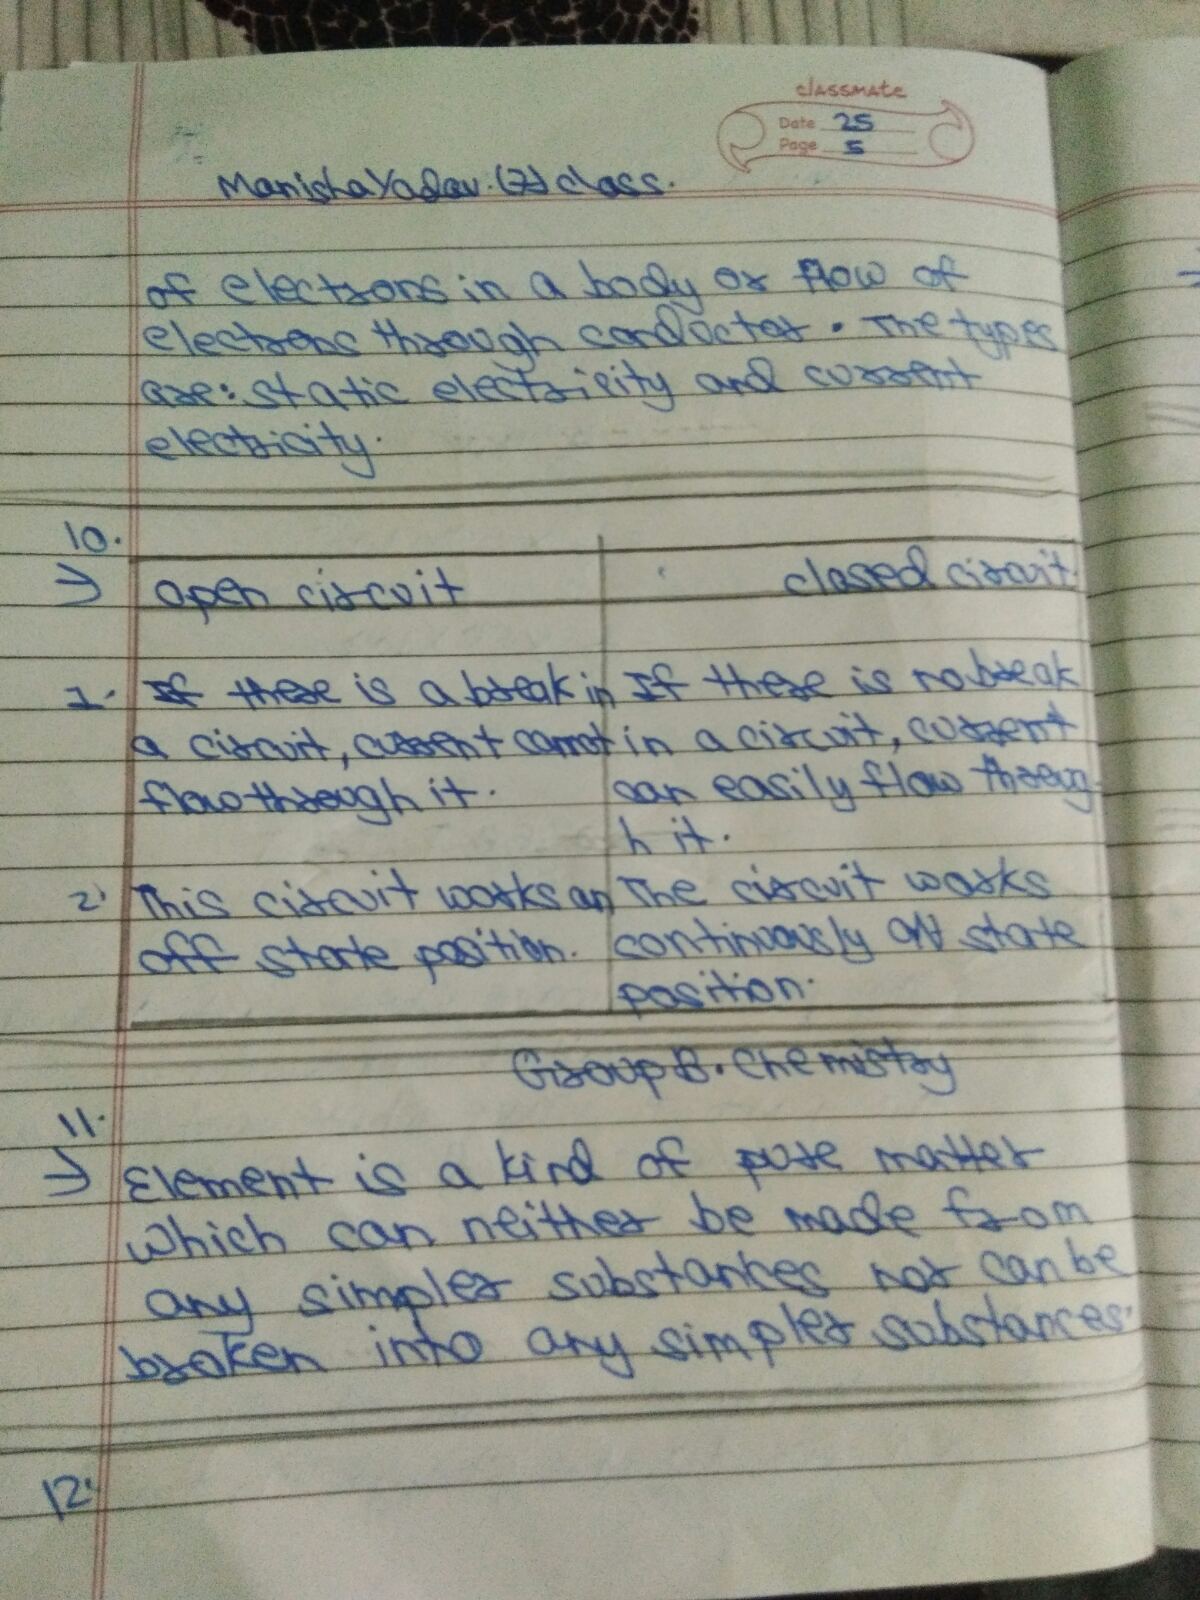 classmate
Date 25
Page 5
Manisha Yadav. (7) class.
of electrons in a body or flow of
electrons through conductor. The types
are: static electricity and current
electricity.
10.
→ Open circuit
closed circuit.
1. If there is a break in
a circuit, current cannot
flow through it.
If there is no break
in a circuit, current
can easily flow throug-
h it.
2. This circuit works an
off state position.
The circuit works
continuously ON state
position.
Group B. Chemistry
11.
→ Element is a kind of pure matter
which can neither be made from
any simpler substances nor can be
broken into any simpler substances.
12.